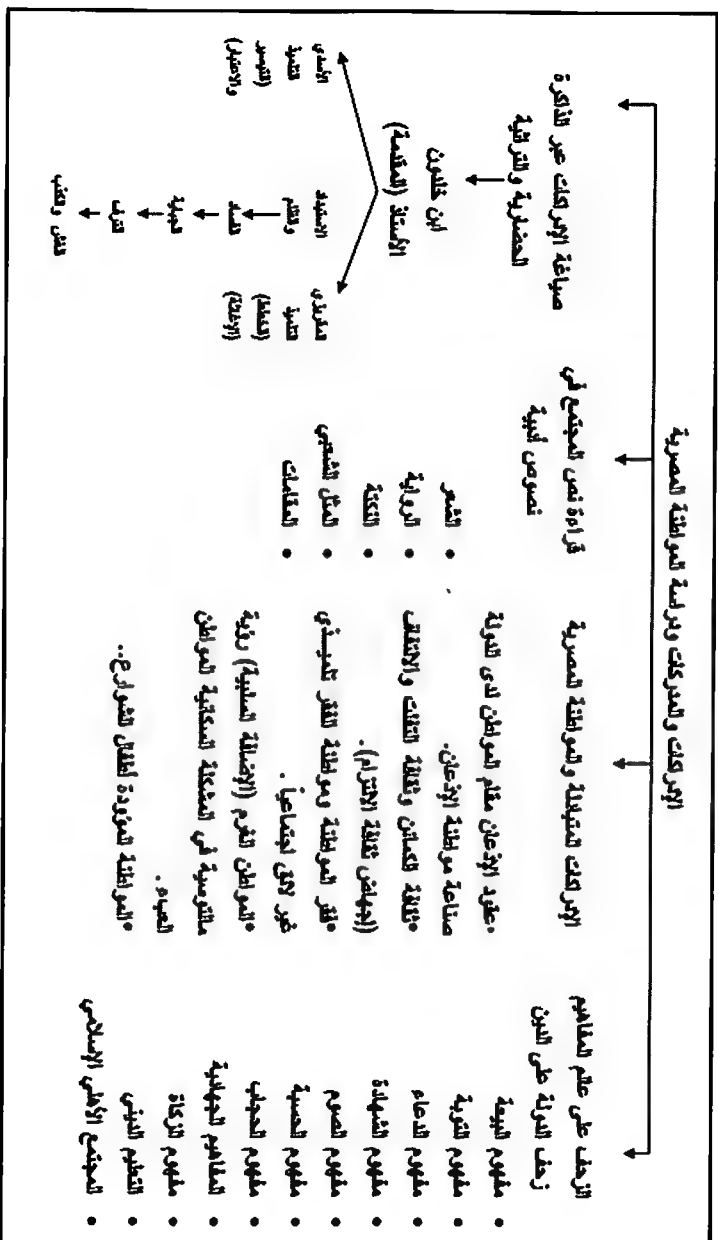 الإدراكات والمدركات ودراسة المواطنة المصرية
صياغة الإدراكات عبر الذاكرة
الحضارية والتراثية
ابن خلدون
الأستاذ (المقدمة)
الأسدي
التلميذ
(التيسير
والاعتبار)
الاستبداد
والظلم
الفساد
الجباية
الترف
الغش والكذب
المقريزي
التلميذ
(الخطط)
(الإغاثة)
قراءة نص المجتمع في
نصوص أدبية
• الشعر
• الرواية
• النكتة
• المثل الشعبي
• المقامات
الإدراكات المتبادلة والمواطنة المصرية
•عقود الإذعان مقام المواطن لدى الدولة
صناعة مواطنة الإذعان.
•ثقافة الكمائن وثقافة التفلت والالتفاف
(إجهاض ثقافة الالتزام).
•فقر المواطنة ومواطنة الفقر تلميـذي
غير لائق اجتماعياً.
•المواطن الغرم (الإضافة السلبية) رؤية
مالتوسية في المشكلة السكانية المواطن
العبء.
•المواطنة الموؤدة أطفال الشوارع..
الزحف على عالم المفاهيم
زحف الدولة على الدين
• مفهوم البيعة
• مفهوم التوبة
• مفهوم الدعاء
• مفهوم الشهادة
• مفهوم الصوم
• مفهوم الحسبة
• مفهوم الحجاب
• المفاهيم الجهادية
• مفهوم الزكاة
• التعليم الديني
• المجتمع الأهلي الإسلامي